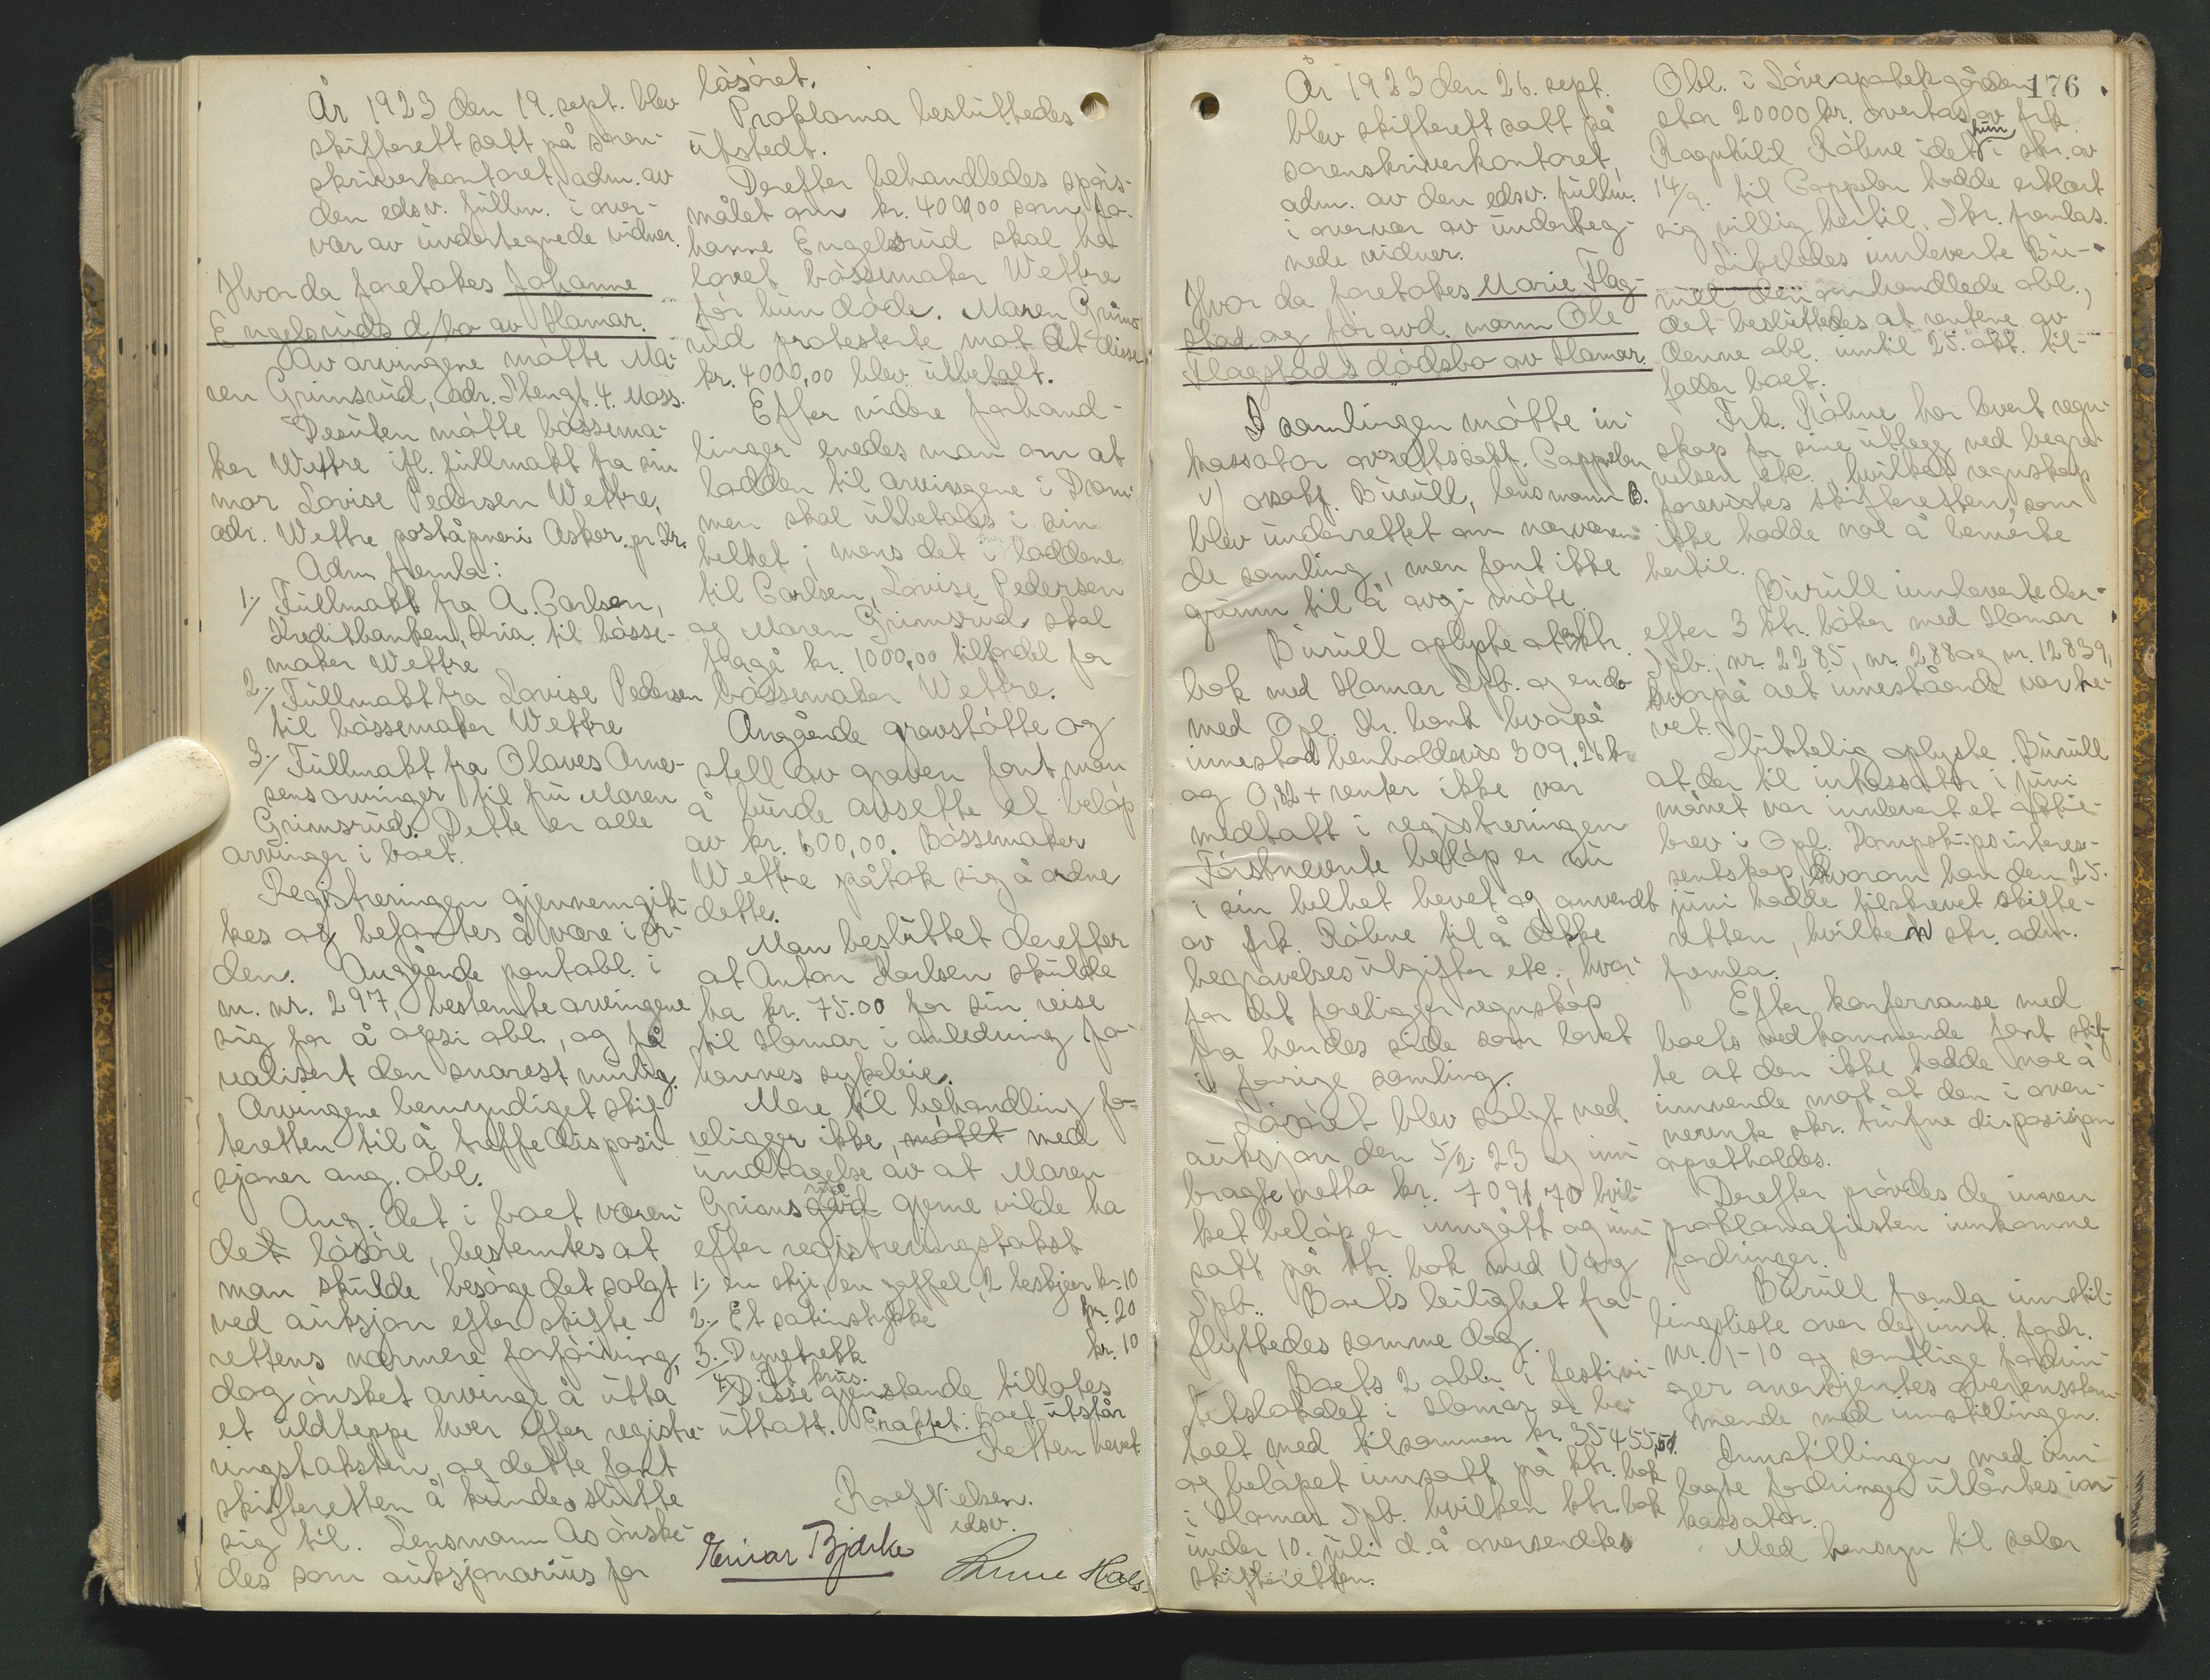 År 1923 den 19. sept. blev
skifterett satt på soren-
skriverkontoret, adm. av
den edsv. fullm. i over-
vær av undertegnede vidner.
Hvor da foretokes Johanne
Engelsruds d/bo av Hamar.
Av arvingene møtte Ma-
ren Grimsrud, adr. Thengt. 4. Moss.
Desuten møtte bøssema-
ker Wettre ifl. fullmakt fra sin
mor Lovise Pedersen Wettre,
adr. Wettre poståpneri Asker pr Kr.
Adm. fremla:
1./ Fullmakt fra A. Carlsen,
Kreditbanken, Kria. til bøsse-
maker Wettre
2./ Fullmakt fra Lovise Pedersen
til bøssemaker Wettre
3./ Fullmakt fra Olaves Arne-
sens arvinger til fru Maren
Grimsrud. Dette er alle
arvinger i boet.
Registreringen gjennemgik-
kes og befantes å være i or-
den. Angående pantobl. i
m. nr. 297, bestemte arvingene
sig for å opsi obl., og få
realisert den snarest mulig.
Arvingene bemyndiget skif-
teretten til å treffe disposi-
sjoner ang. obl.
Ang. det i boet væren-
det løsøre, bestemtes at
man skulde besørge det solgt
ved auksjon efter skifte-
rettens nærmere forføining,
dog ønsket arvinge å utta
et uldteppe hver efter registre-
ringstaksten, og dette fant
skifteretten å kunde slutte
sig til. Lensmann As ønske-
des som auksjonarius for
løsøret.
Proklama besluttedes
utstedt.
Derefter behandledes spørs-
målet om kr. 4000,00 som Jo-
hanne Engelsrud skal ha
lovet bøssemaker Wettre
før hun døde. Maren Grims-
rud protesterte mot at disse
kr. 4000,00 blev utbetalt.
Efter videre forhand-
linger enedes man om at
lodden til arvingene i Dram-
men skal utbetales i sin
helhet; mens det i loddene
til Carlsen, Lovise Pedersen
og Maren Grimsrud skal
fragå kr. 1000,00 til fordel for
bøssemaker Wettre.
Angående gravstøtte og
stell av graven fant man
å burde avsette et beløp
av kr. 600,00. Bøssemaker
Wettre påtok sig å ordne
dette.
Man besluttet derefter
at Anton Karlsen skulde
ha kr. 75.00 for sin reise
til Hamar i anledning Jo-
hannes sykeleie.
Mere til behandling fo-
religger ikke, møtt med
undtagelse av at Maren
Grimsrud gjerne vilde ha
efter registreringstakst
1./ en skje, en gaffel, 2 teskjeer kr. 10
2./ Et satinstykke kr. 20
3./ Dynetrekk kr. 10
4./ krus.
Disse gjenstande tillotes
uttatt. Eraktet: Boet utstår
Retten hevet
Roef Nielsen.
edsv.
Einar Bjørke
176
År 1923 den 26. sept.
blev skifterett satt på
sorenskriverkontoret,
adm. av den edsv. fullm.
i overvær av underteg-
nede vidner.
Hvor da foretokes Marie Flag-
stad og før avd. mann Ole
Flagstads dødsbo av Hamar.
I samlingen møtte in-
kassator overrettssakf. Cappelen
v/ orsakf. Burull, lensmann B.
blev underrettet om nærværen-
de samling, men fant ikke
grunn til å avgi møte.
Burull oplyste at en ktr.
bok med Hamar Spb. og en do
med Opl. Kr. bank hvorpå
innestod henholdsvis 309,26 kr
og 0,82 + renter ikke var
medtatt i registreringen
Førstnevnte beløp er nu
i sin helhet hevet og anvendt
av frk. Röhne til å dekke
begravelsesutgifter etc., hvor-
for det foreligger regnskap
fra hendes side som lovet
i forrige samling.
Løsøret blev solgt ved
auksjon den 5/2. 23 og inn-
bragte netto kr. 7091,70 hvil-
ket beløp er inngått og inn-
satt på ktr. bok med Vang
Spb.. Boets leilighet fra-
flyttedes samme dag.
Boets 2 obl. i festivi-
tetslokalet i Hamar er be-
talt med tilsammen kr. 35455,51.
og beløpet innsatt på ktr. bok
i Hamar Spb. hvilken ktr. bok
under 10. juli d.å oversendtes
skifteretten.
Obl. i Løveapotekgården
stor 20000 kr. overtas av frk.
Ragnhild Röhne idet hun i skr. av
14/9. til Cappelen hadde erklært
sig villig hertil. Skr. fremlas.
Likeledes innleverte Bu-
rull den omhandlede obl.,
det besluttedes at rentene av
denne obl. inntil 25. okt. til-
faller boet.
Frk. Röhne har levert regn-
skap for sine utlegg ved begra-
velsen etc. hvilket regnskap
forevistes skifteretten, som
ikke hadde noe å bemerke
hertil.
Burull innleverte der-
efter 3 ktr. bøker med Hamar
Spb., nr. 2285, nr. 288 og nr. 12839,
hvorpå alt innestående var he-
vet.
Sluttelig oplyste Burull
at der til inkassator i juni
måned var innlevert et aktie-
brev i Opl. Dampsk-ps interes-
sentskap, hvorom han den 25.
juni hadde tilskrevet skifte-
retten, hvilken skr. adm.
fremla.
Efter konferranse med
boets vedkommende fant skif-
te at den ikke hadde noe å
innvende mot at den i oven-
nevnte skr. trufne disposisjon
opretholdes.
Derefter prøvdes de innen
proklamafristen innkomne
fordringer.
Burull fremla innstil-
lingsliste over de innk. fordr.
nr. 1-10 og samtlige fordrin-
ger anerkjentes overensstem-
mende med innstillingen.
Innstillingen med inn-
lagte fordringer utlåntes inn-
kassator.
Med hensyn til salær